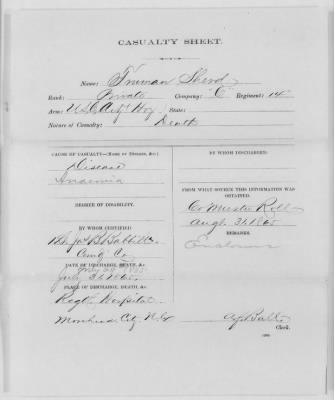 CASUALTY SHEET.
Name: Truman Sherd
Rank: Private Company: "C" Regiment: 14"
Arm: U.S.C. Art'y Hvy State:
Nature of Casualty: Death
CAUSE OF CASUALTY—(NAME OF DISEASE, &c.)
Disease
Anaemia
DEGREE OF DISABILITY.
BY WHOM CERTIFIED
Com'g Co.
DATE OF DISCHARGE, DEATH, &c.
July 31 1865
PLACE OF DISCHARGE, DEATH, &c.
Regt'l Hospital
Morehead City N.C.
BY WHOM DISCHARGED.
FROM WHAT SOURCE THIS INFORMATION WAS OBTAINED.
Co Muster Roll
Aug 31 1865
REMARKS.
Clerk.